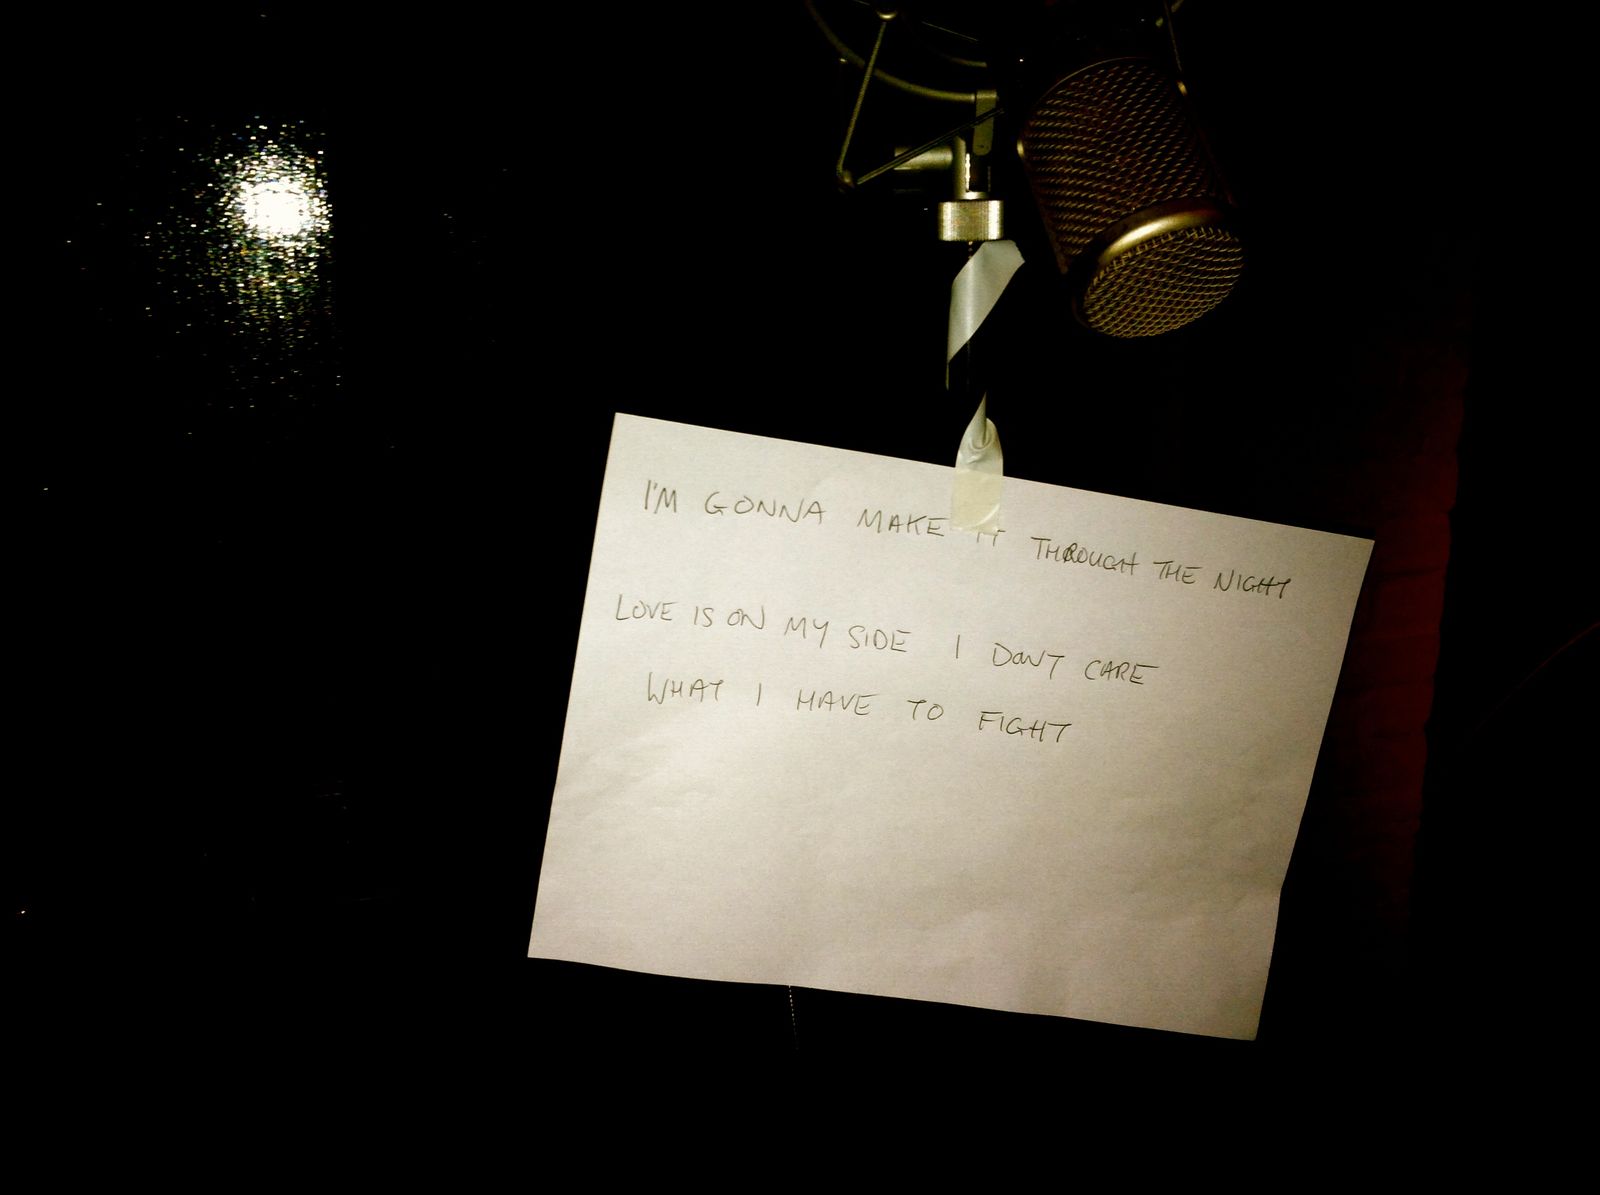 I'M GONNA MAKE IT THROUGH THE NIGHT
LOVE IS ON MY SIDE I DON'T CARE
WHAT I HAVE TO FIGHT